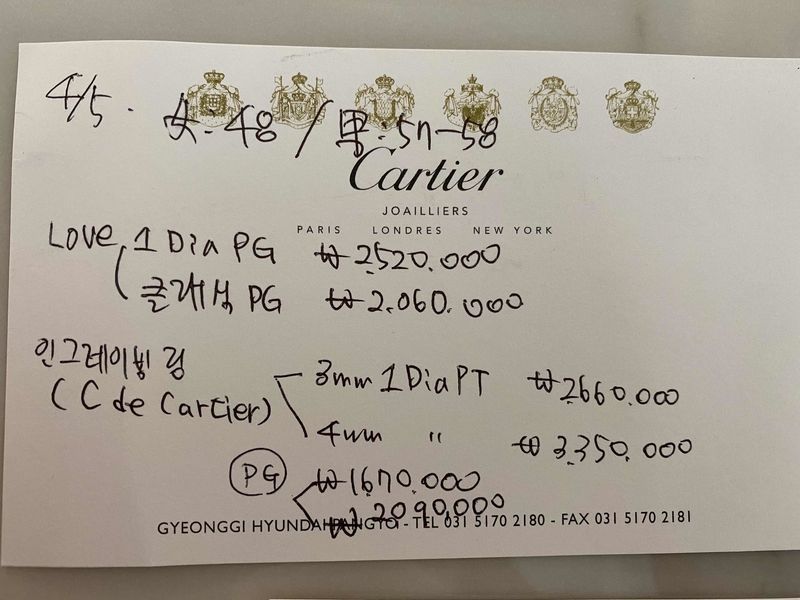 4/5. 女. 48 / 男. 57-58
Cartier
JOAILLIERS
PARIS LONDRES NEW YORK
Love 1 Dia PG ₩2,520.000
클래식 PG ₩2.060.000
인그레이빙 링
(C de Cartier)
3mm 1 Dia PT ₩2660.000
4mm " ₩3.350.000
PG ₩1670.000
₩2090,000
GYEONGGI HYUNDAI PANGYO - TEL 031 5170 2180 - FAX 031 5170 2181